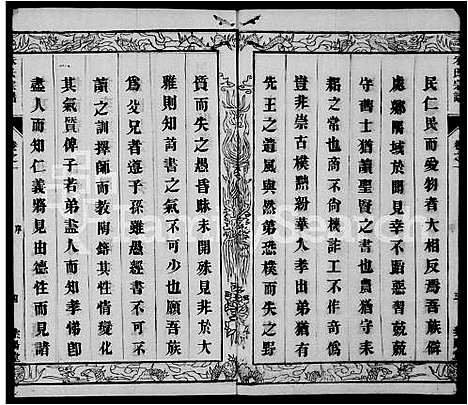 民仁民而愛物者大相反焉吾族
處鄉隅域於聞見幸不蹈惡習兢兢
守舊士猶讀聖賢之書也農猶守耕
稻之常也商不尚機詐工不作奇偽
豈非崇古樸黜紛華人孝出弟猶有
先王之遺風與然弟恐樸而失之野
質而失之愚昏昧未開殊見非於大
雅則知詩書之氣不可少也願吾族
為父兄者遵子孫雖愚經書不可不
讀之訓擇師而教陶鎔其性情變化
其氣質俾子若弟盡人而知孝悌卽
盡人而知仁義將見由德性而見諸
卷之一
序